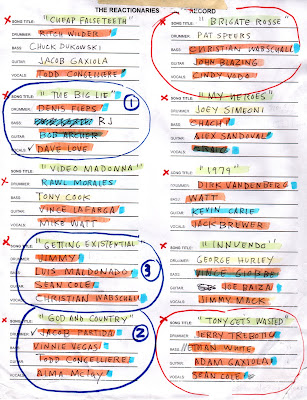 THE REACTIONARIES RECORD
SONG TITLE: "CHEAP FALSE TEETH"
DRUMMER: RITCH WILDER
BASS: CHUCK DUKOWSKI
GUITAR: JACOB GAXIOLA
VOCALS: TODD CONGELLIERE
SONG TITLE: "THE BIG LIE"
DRUMMER: DENIS FLEPS
BASS: RJ
GUITAR: BOB ARCHER
VOCALS: DAVE LOVE
①
SONG TITLE: "VIDEO MADONNA"
DRUMMER: RAWL MORALES
BASS: TONY COOK
GUITAR: VINCE LAFARGA
VOCALS: MIKE WATT
SONG TITLE: "GETTING EXISTENTIAL
DRUMMER: JIMMY
BASS: LUIS MALDONADO
GUITAR: SEAN COLE
VOCALS: CHRISTIAN WABSCHALL
③
SONG TITLE: "GOD AND COUNTRY"
DRUMMER: JACOB PARTIDA
BASS: VINNIE VEGAS
GUITAR: TODD CONGELLIERE
VOCALS:
②
SONG TITLE: "BRIGATE ROSSE"
DRUMMER: PAT SPEURS
BASS: CHRISTIAN WABSCHALL
GUITAR: JOHN BLAZING
VOCALS: CINDY VODO
SONG TITLE: "MY HEROES"
DRUMMER: JOEY SIMEONI
BASS: CHACHY
GUITAR: ALEX SANDOVAL
VOCALS: CRAIG
SONG TITLE: "1979"
DRUMMER: DIRK VANDENBERG
BASS: WATT
GUITAR: KEVIN CARLE
VOCALS: JACK BREWER
SONG TITLE: "INNUENDO"
DRUMMER: GEORGE HURLEY
BASS: VINCE
GUITAR: JOE BAIZA
VOCALS: JIMMY MACK
SONG TITLE: "TONY GETS WASTED"
DRUMMER: JERRY TREBOTIC
BASS: ETHAN WHITE
GUITAR: ADAM GAXIOLA
VOCALS: SEAN COLE